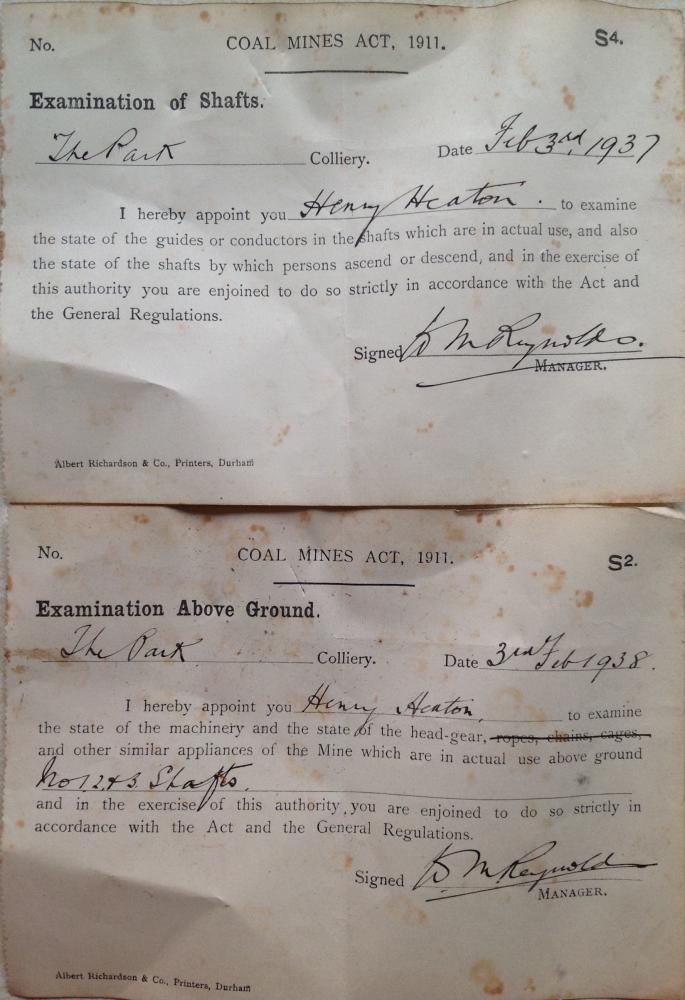 No. COAL MINES ACT, 1911. S4.
Examination of Shafts.
The Park Colliery. Date Feb 3rd, 1937
I hereby appoint you Henry Heaton. to examine
the state of the guides or conductors in the shafts which are in actual use, and also
the state of the shafts by which persons ascend or descend, and in the exercise of
this authority you are enjoined to do so strictly in accordance with the Act and
the General Regulations.
Signed D M Reynolds.
MANAGER.
Albert Richardson & Co., Printers, Durham
No. COAL MINES ACT, 1911. S2.
Examination Above Ground.
The Park Colliery. Date 3rd Feb 1938.
I hereby appoint you Henry Heaton, to examine
the state of the machinery and the state of the head-gear, ropes, chains, cages,
and other similar appliances of the Mine which are in actual use above ground
No 1.2 & 3. Shafts.
and in the exercise of this authority you are enjoined to do so strictly in
accordance with the Act and the General Regulations.
Signed D M Reynolds
MANAGER.
Albert Richardson & Co., Printers, Durham